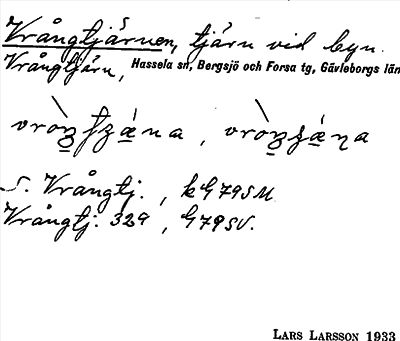 Vrångtjärnen, tjärn vid byn.
Vrångtjärn, Hassela sn, Bergsjö och Forsa tg, Gävleborgs län
S. Vrångtj., k G 79 SM
Vrångtj. 329, G 79 SV.
LARS LARSSON 1933